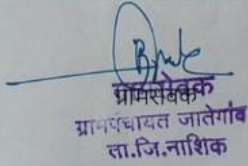 ग्रामसेवक
ग्रामपंचायत जातेगांव
ता.जि.नाशिक